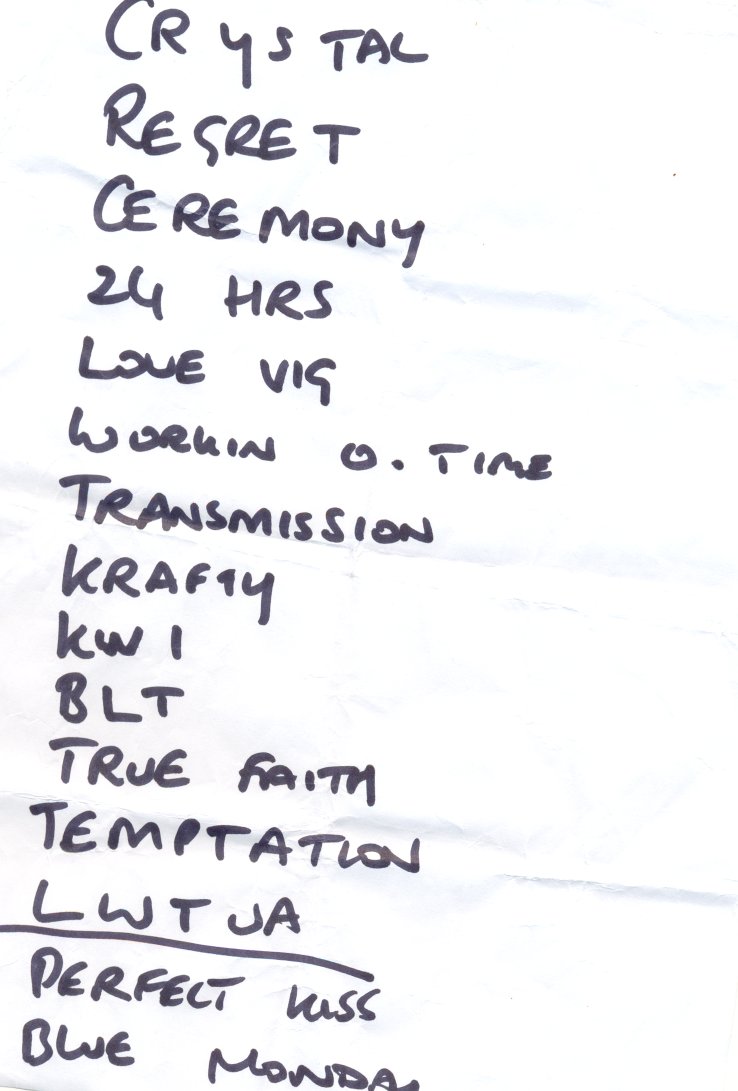 CRYSTAL
REGRET
CEREMONY
24 HRS
LOVE VIG
WORKIN O. TIME
TRANSMISSION
KRAFTY
KW1
BLT
TRUE FAITH
TEMPTATION
LWTUA
PERFECT KISS
BLUE MONDAY